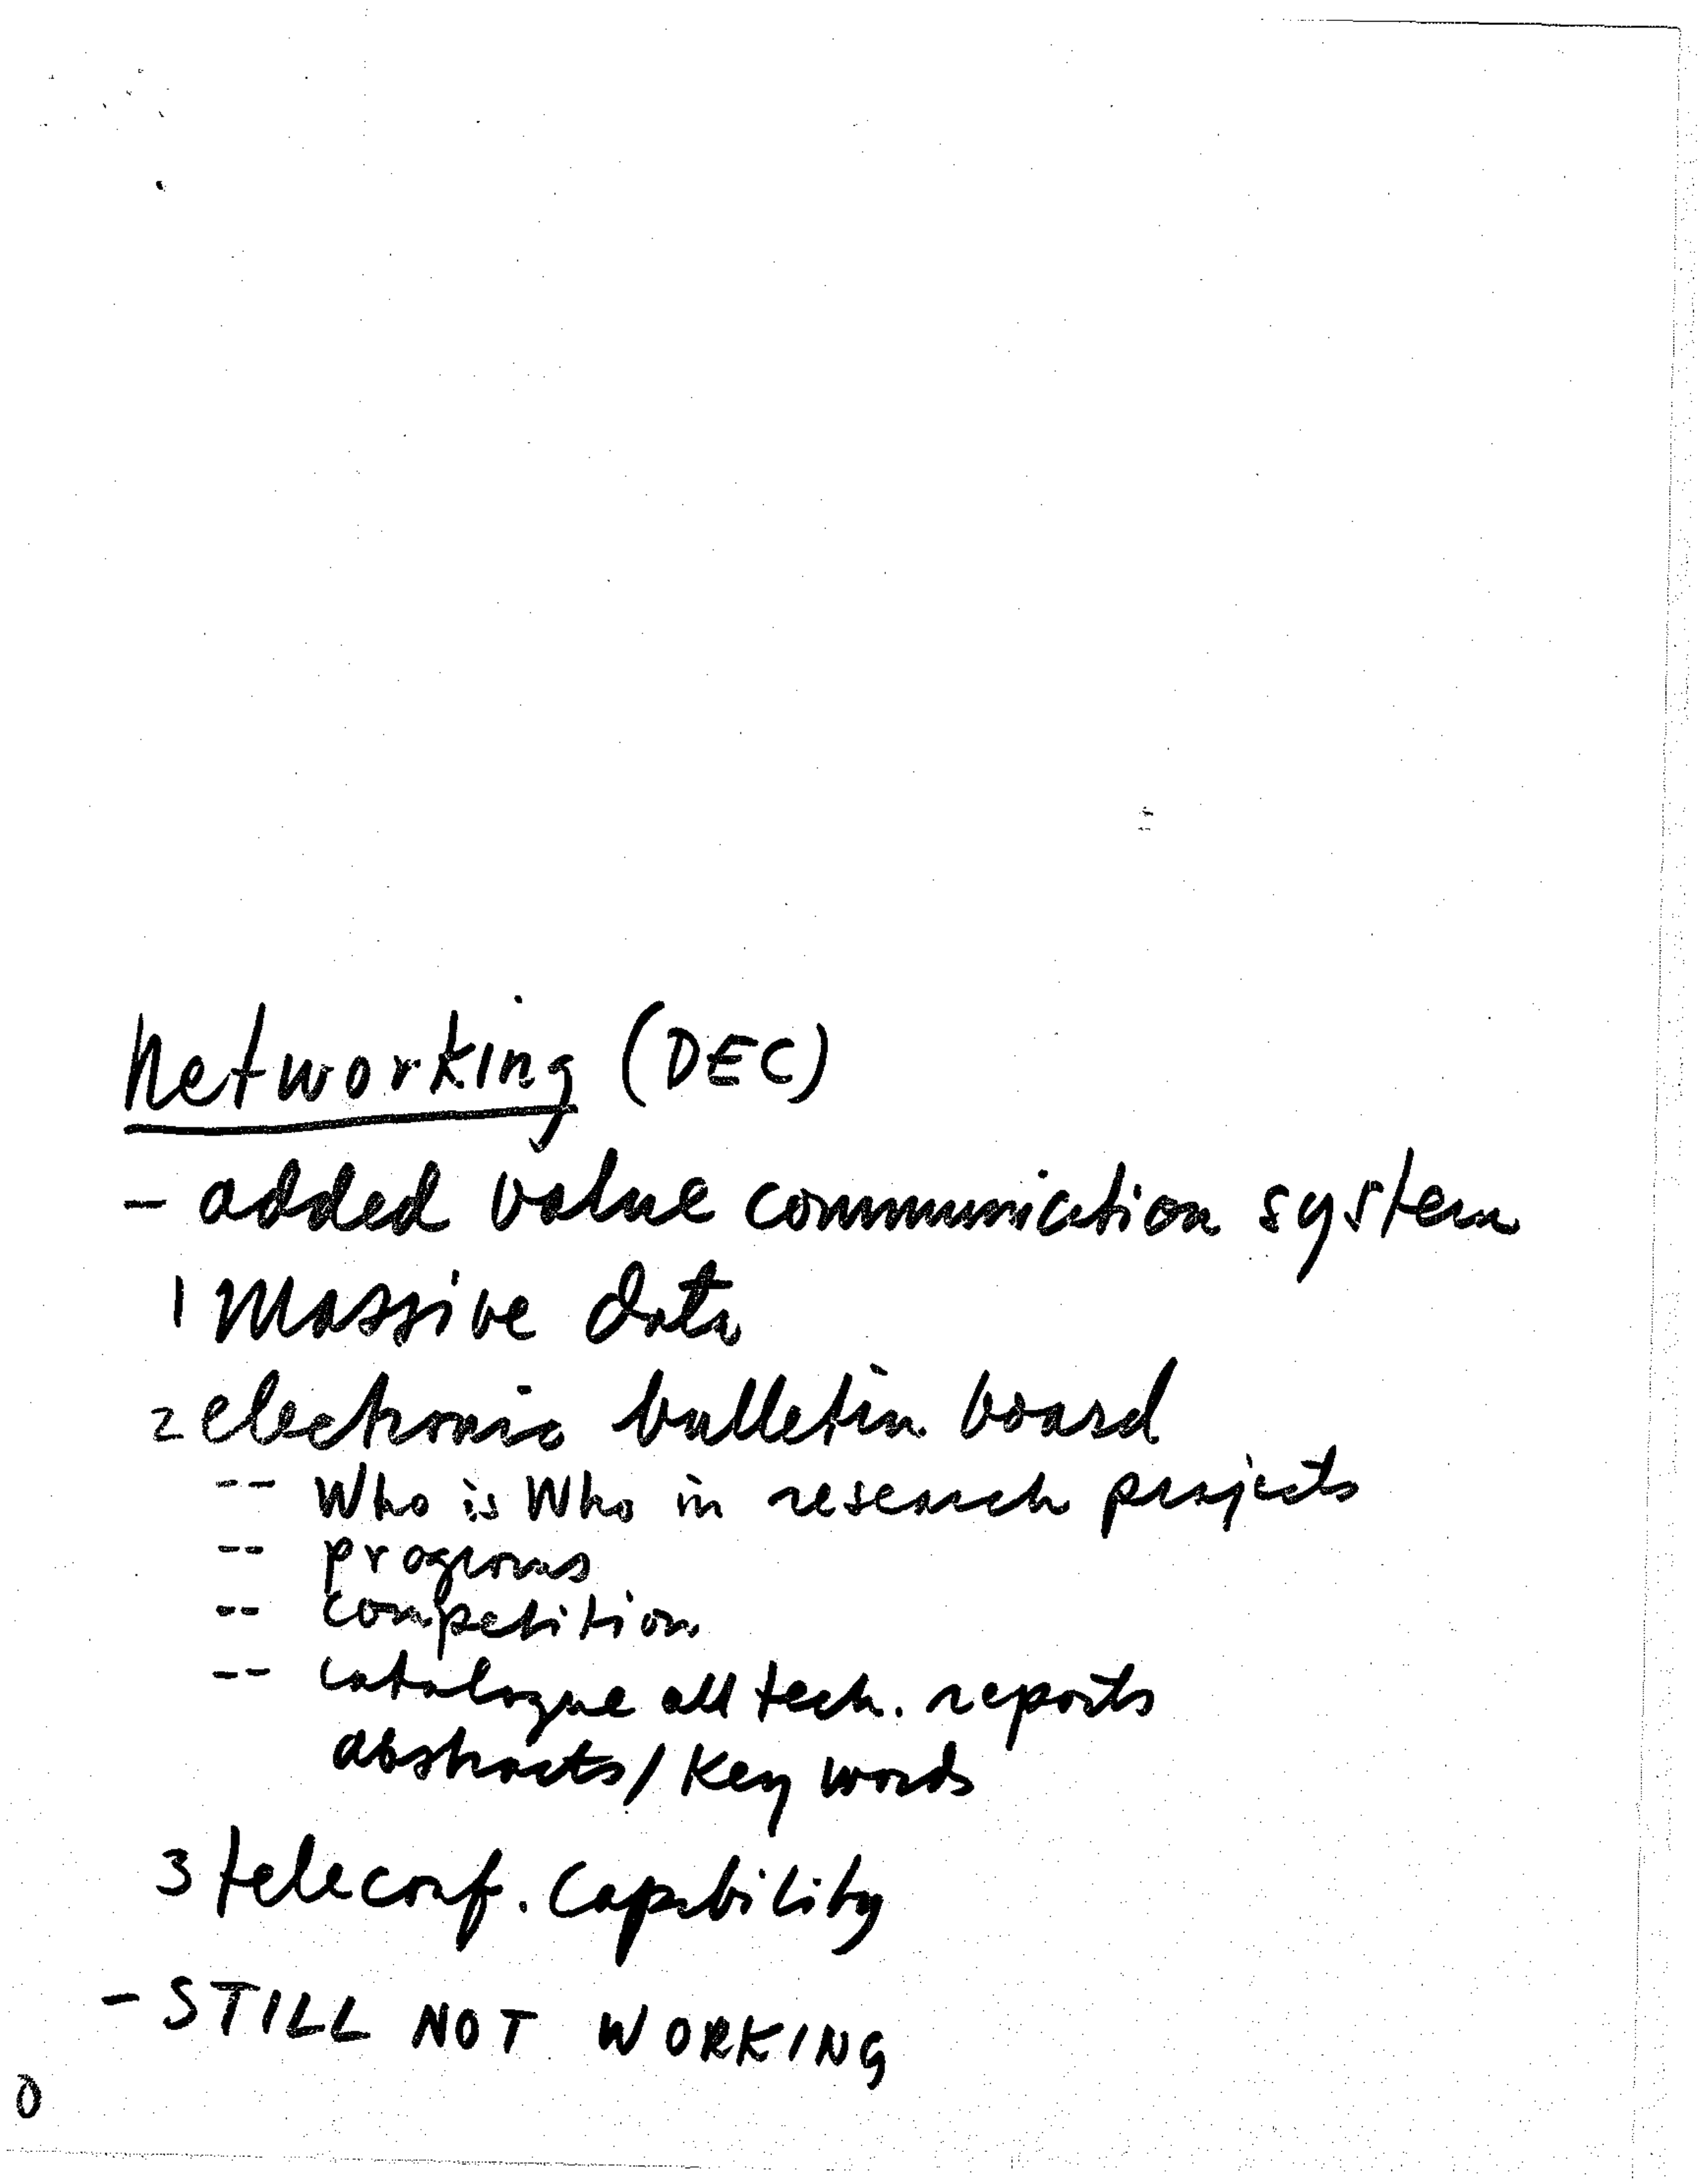 Networking (DEC)
- added value communication system
1 Massive data
2 electronic bulletin board
-- Who is Who in research projects
-- programs
-- competition
-- catalogue all tech. reports
abstracts/key words
3 teleconf. capability
- STILL NOT WORKING
0